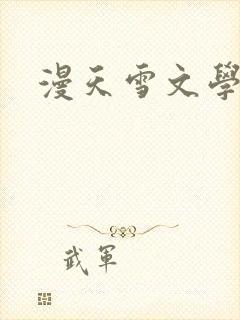 漫天雪文學
武軍